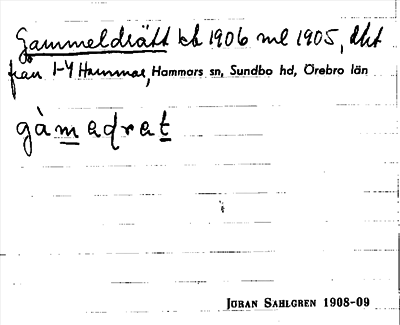 Gammeldrätt kb 1906 ml 1905, dht
från 1-4 Hammar, Hammars sn, Sundbo hd, Örebro län
gàmadrat
JÖRAN SAHLGREN 1908-09